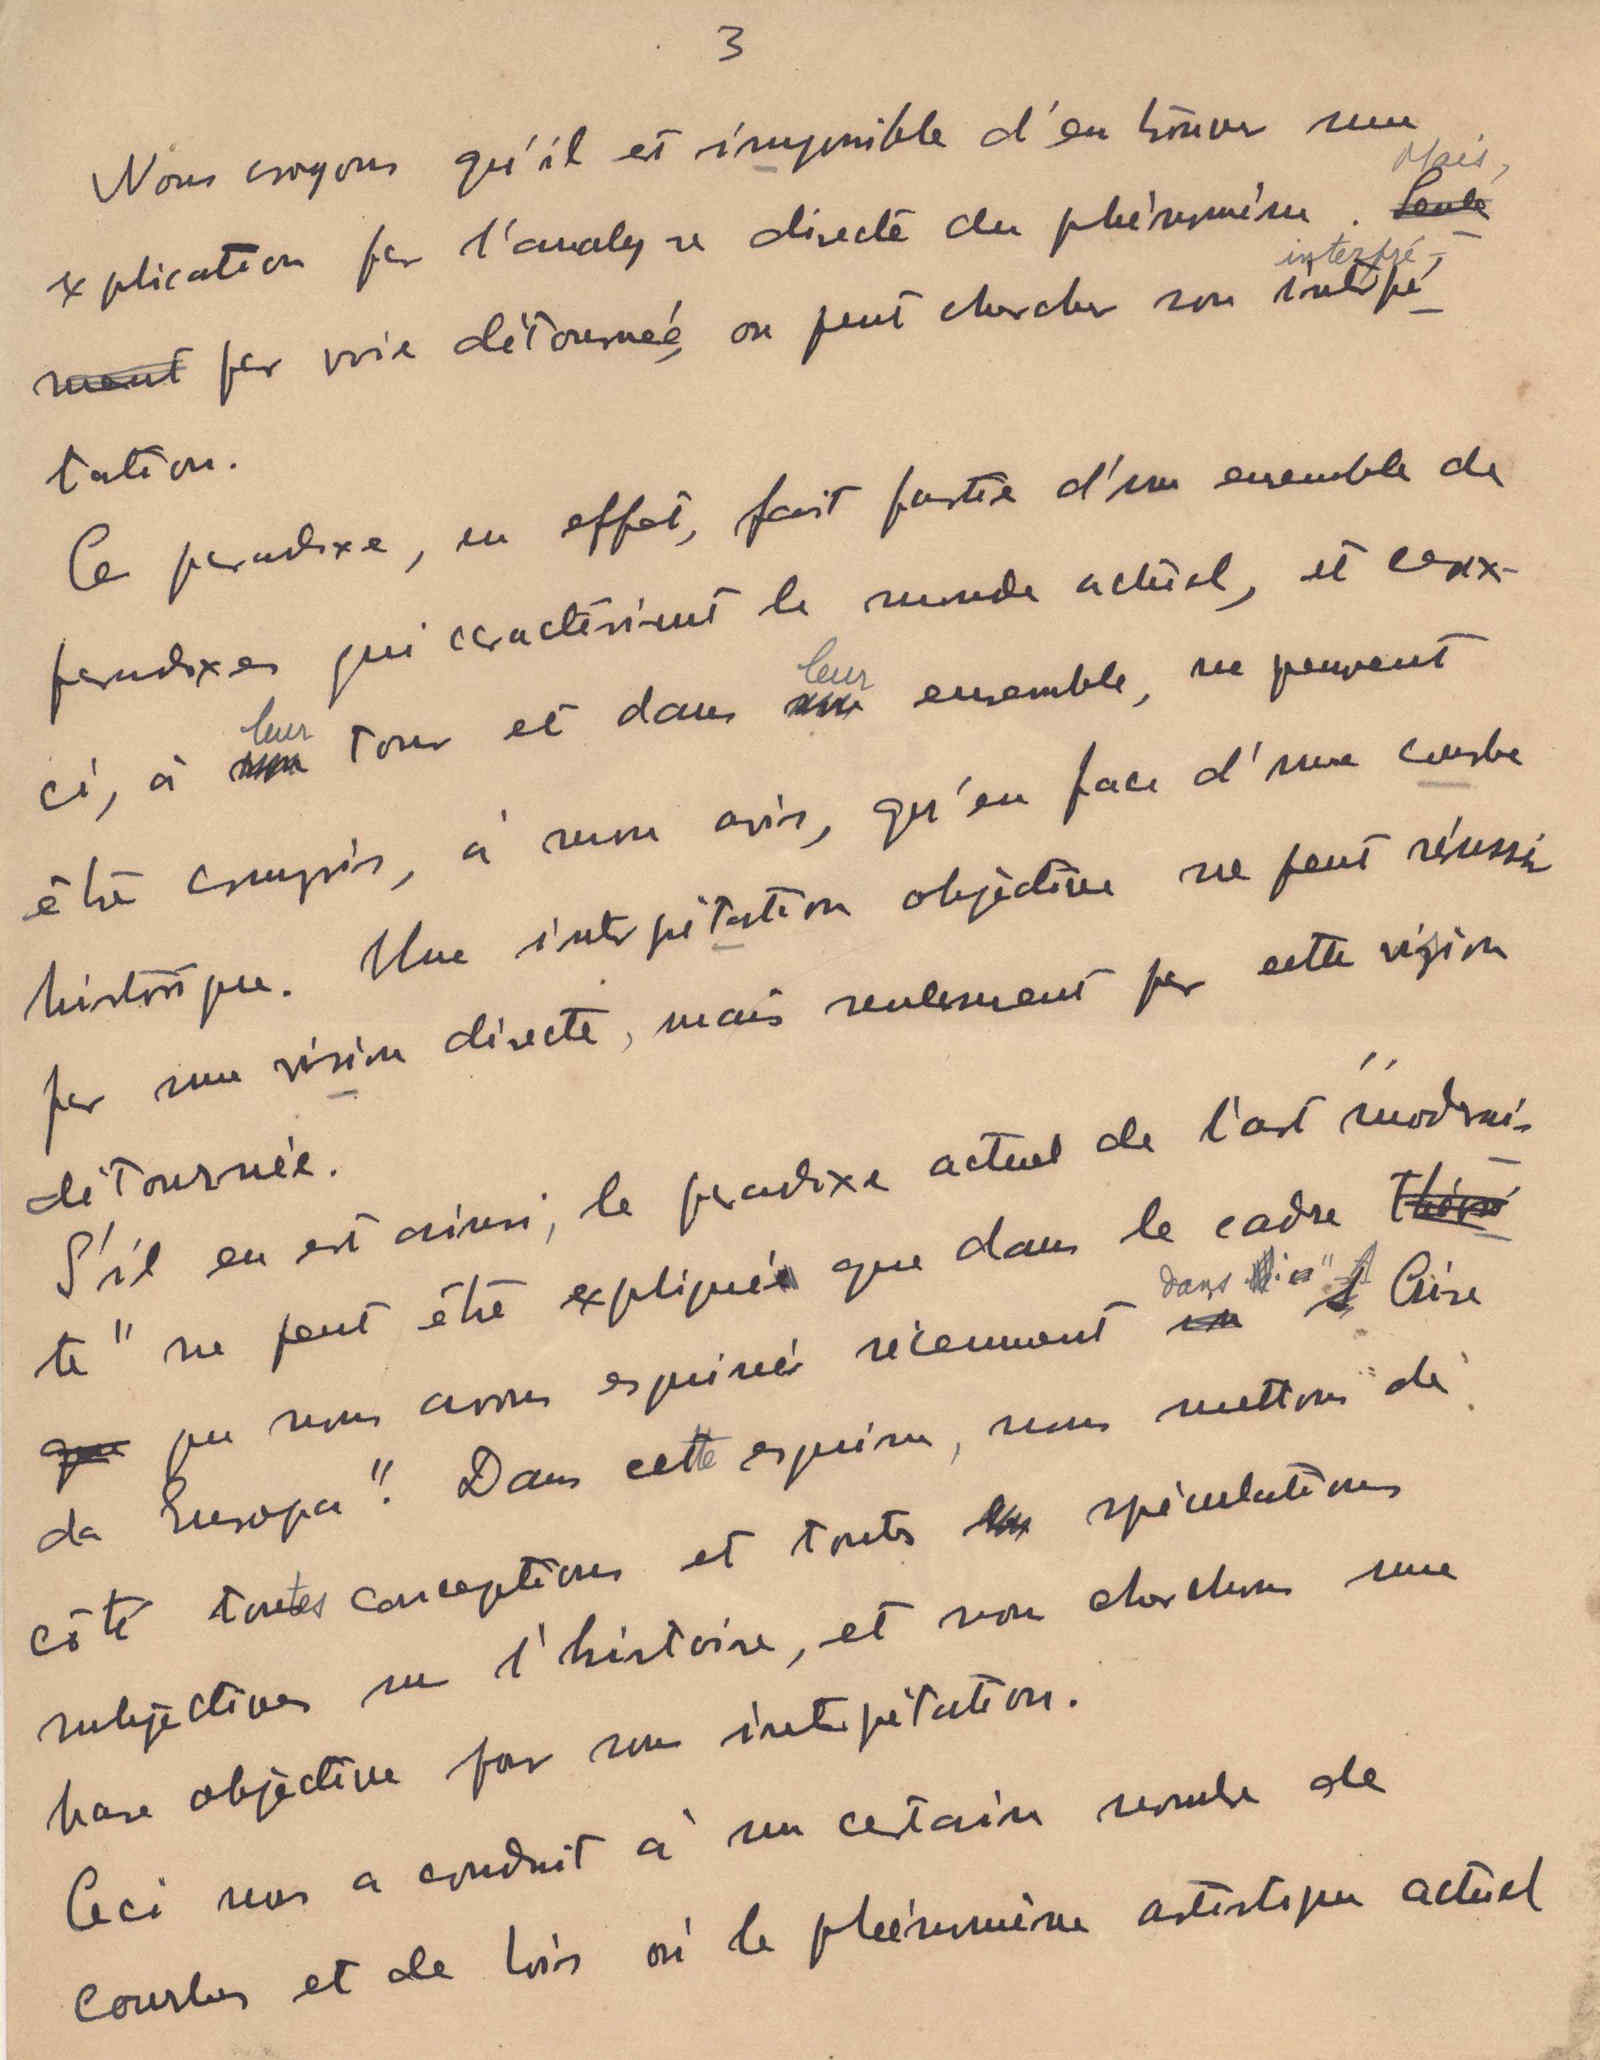 3
Nous croyons qu'il est impossible d'en trouver une
explication par l'analyse directe du phénomène. Mais, Seule
ment par voie détournée, on peut chercher son interpré-
tation.
Ce paradoxe, en effet, fait partie d'un ensemble de
paradoxes qui caractérisent le monde actuel, et ceux-
ci, à leur tour et dans leur ensemble, ne peuvent
être compris, à mon avis, qu'en face d'une courbe
historique. Une interprétation objective ne peut réussir
par une vision directe, mais seulement par cette vision
détournée.
S'il en est ainsi, le paradoxe actuel de l'art "moderni-
te" ne peut être expliqué que dans le cadre
que que nous avons esquissé récemment dans "A Crise
da Europa". Dans cette esquisse, nous mettons de
côté toutes conceptions et toutes spéculations
subjectives sur l'histoire, et nous cherchons une
base objective pour son interprétation.
Ceci nous a conduit à un certain nombre de
courbes et de lois où le phénomène artistique actuel